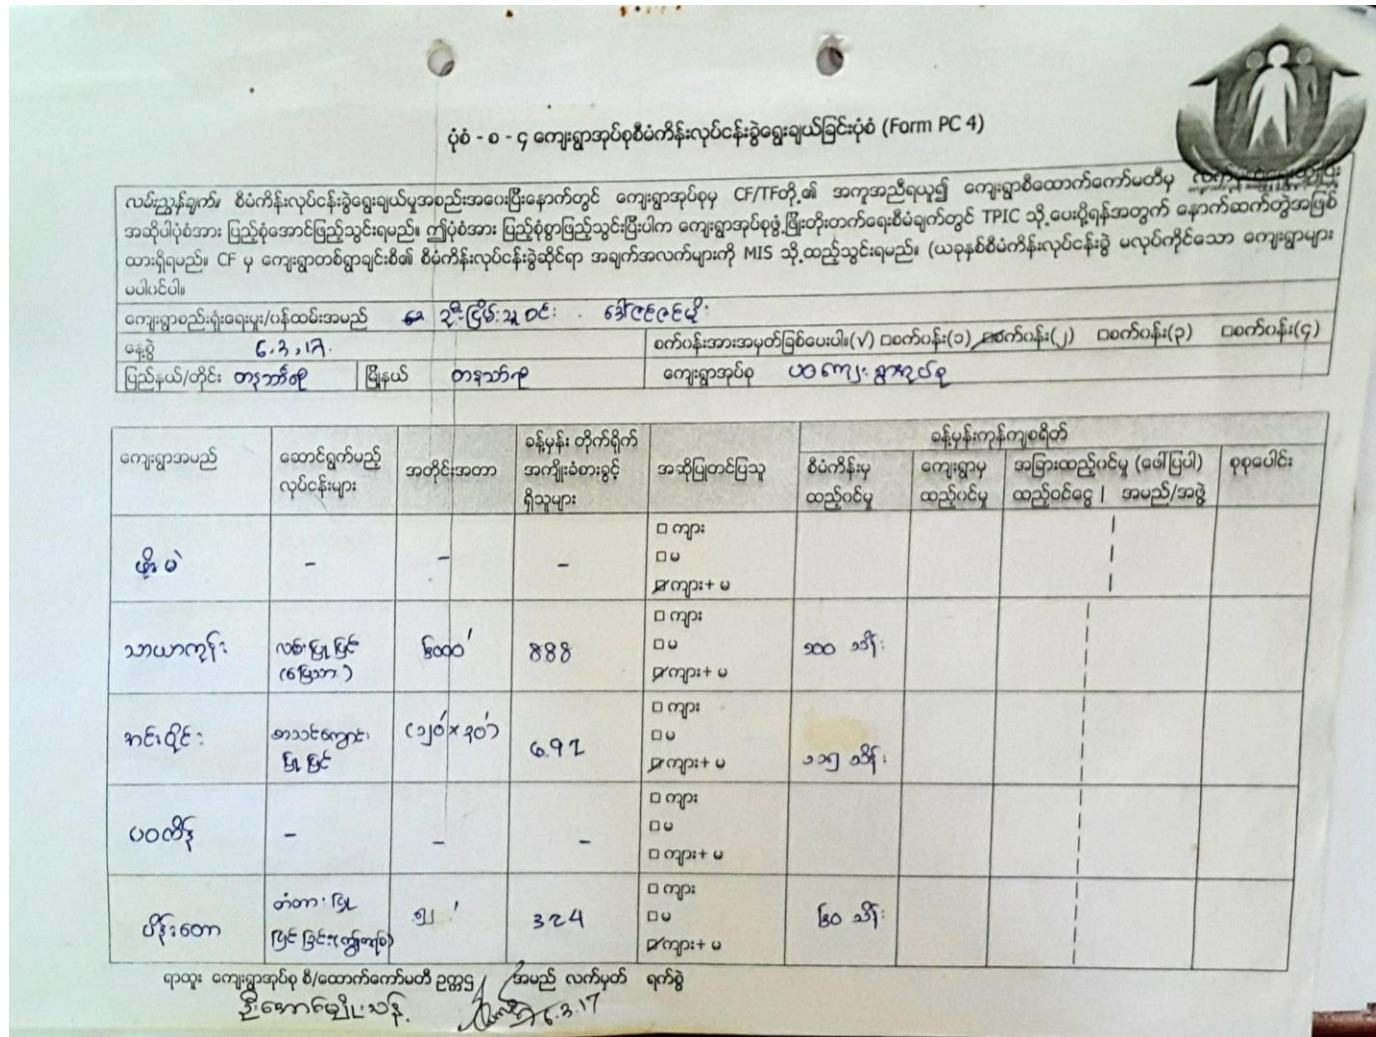 ပုံစံ - စ - ၄ ကျေးရွာအုပ်စုစီမံကိန်းလုပ်ငန်းခွဲရွေးချယ်ခြင်းပုံစံ (Form PC 4)
လမ်းညွှန်ချက်။ စီမံကိန်းလုပ်ငန်းခွဲရွေးချယ်မှုအစည်းအဝေးပြီးနောက်တွင် ကျေးရွာအုပ်စုမှ CF/TFတို့၏ အကူအညီရယူ၍ ကျေးရွာစီထောက်ကော်မတီမှ
အဆိုပါပုံစံအား ပြည့်စုံအောင်ဖြည့်သွင်းရမည်။ ဤပုံစံအား ပြည့်စုံစွာဖြည့်သွင်းပြီးပါက ကျေးရွာအုပ်စုဖွံ့ဖြိုးတိုးတက်ရေးစီမံချက်တွင် TPIC သို့ပေးပို့ရန်အတွက် နောက်ဆက်တွဲအဖြစ်
ထားရှိရမည်။ CF မှ ကျေးရွာတစ်ရွာချင်းစီ၏ စီမံကိန်းလုပ်ငန်းခွဲဆိုင်ရာ အချက်အလက်များကို MIS သို့ထည့်သွင်းရမည်။ (ယခုနှစ်စီမံကိန်းလုပ်ငန်းခွဲ မလုပ်ကိုင်သော ကျေးရွာများ
မပါဝင်ပါ။
ကျေးရွာစည်းရုံးရေးမှူး/ဝန်ထမ်းအမည် ဦးငြိမ်းသူဝင်း . ဒေါ်ဇင်ဇင်မိုး
နေ့စွဲ 6.3.17. စက်ဝန်းအားအမှတ်ခြစ်ပေးပါ။(√) □စက်ဝန်း(၁) ☑စက်ဝန်း(၂) □စက်ဝန်း(၃) □စက်ဝန်း(၄)
ပြည်နယ်/တိုင်း တနင်္သာရီ မြို့နယ် တနင်္သာရီ ကျေးရွာအုပ်စု ပဝကျေးရွာအုပ်စု
ကျေးရွာအမည် ဆောင်ရွက်မည့် လုပ်ငန်းများ အတိုင်းအတာ ခန့်မှန်း တိုက်ရိုက် အကျိုးခံစားခွင့် ရှိသူများ အဆိုပြုတင်ပြသူ ခန့်မှန်းကုန်ကျစရိတ်
စီမံကိန်းမှ ထည့်ဝင်မှု ကျေးရွာမှ ထည့်ဝင်မှု အခြားထည့်ဝင်မှု (ဖော်ပြပါ) ထည့်ဝင်ငွေ | အမည်/အဖွဲ့ စုစုပေါင်း
- - -
□ ကျား
□ မ
☑ ကျား + မ
သာယာကုန်း လမ်းပြုပြင် (မြေသား) ၆၀၀၀' 888
□ ကျား
□ မ
☑ ကျား + မ
၁၀၀ သိန်း
အင်းဝိုင်း စာသင်ကျောင်း ပြုပြင် (၁၂၀' × ၃၀') 692
□ ကျား
□ မ
☑ ကျား + မ
၁၁၅ သိန်း
- - -
□ ကျား
□ မ
□ ကျား + မ
ပိန္နဲတော တံတားပြု ပြင်ခြင်း ၅၂' 324
□ ကျား
□ မ
☑ ကျား + မ
၆၀ သိန်း
ရာထူး ကျေးရွာအုပ်စု စီ/ထောက်ကော်မတီ ဥက္ကဋ္ဌ အမည် လက်မှတ် ရက်စွဲ
ဦးအောင်မျိုးသန့် 6.3.17